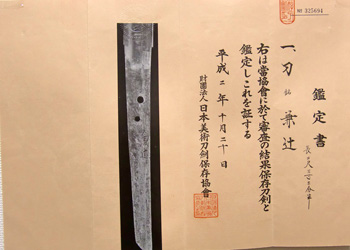 № 325604
鑑定書
一、刀 銘 兼辻
長
右は當協會に於て審査の結果保存刀剣と
鑑定しこれを証する
平成二年十月二十日
財團法人日本美術刀劍保存協會